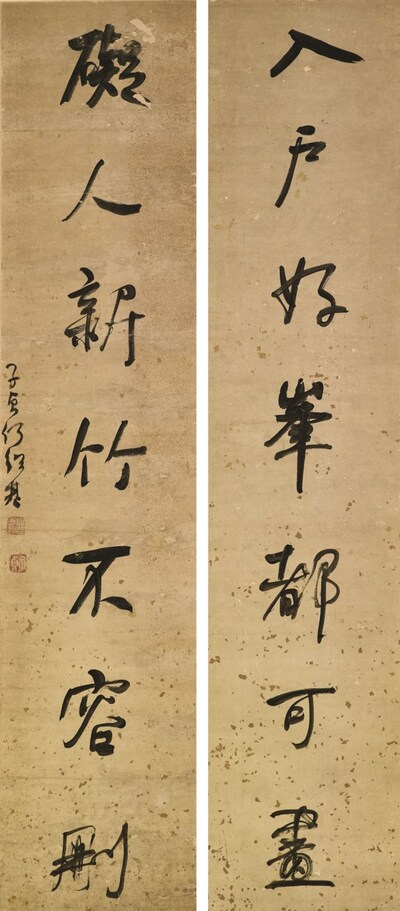 入戶好峯都可畫
礙人新竹不容刪
子貞何紹基